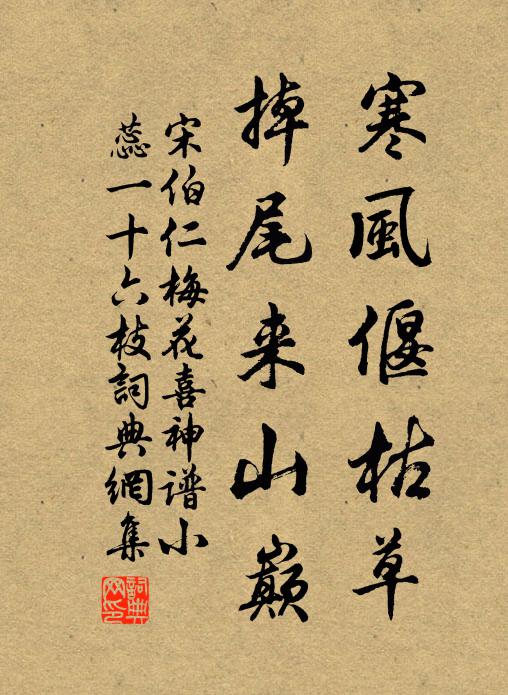 寒風偃枯草
掉尾来山巔
宋伯仁梅花喜神谱小
蕊一十六枝詞典網集
詞典网印